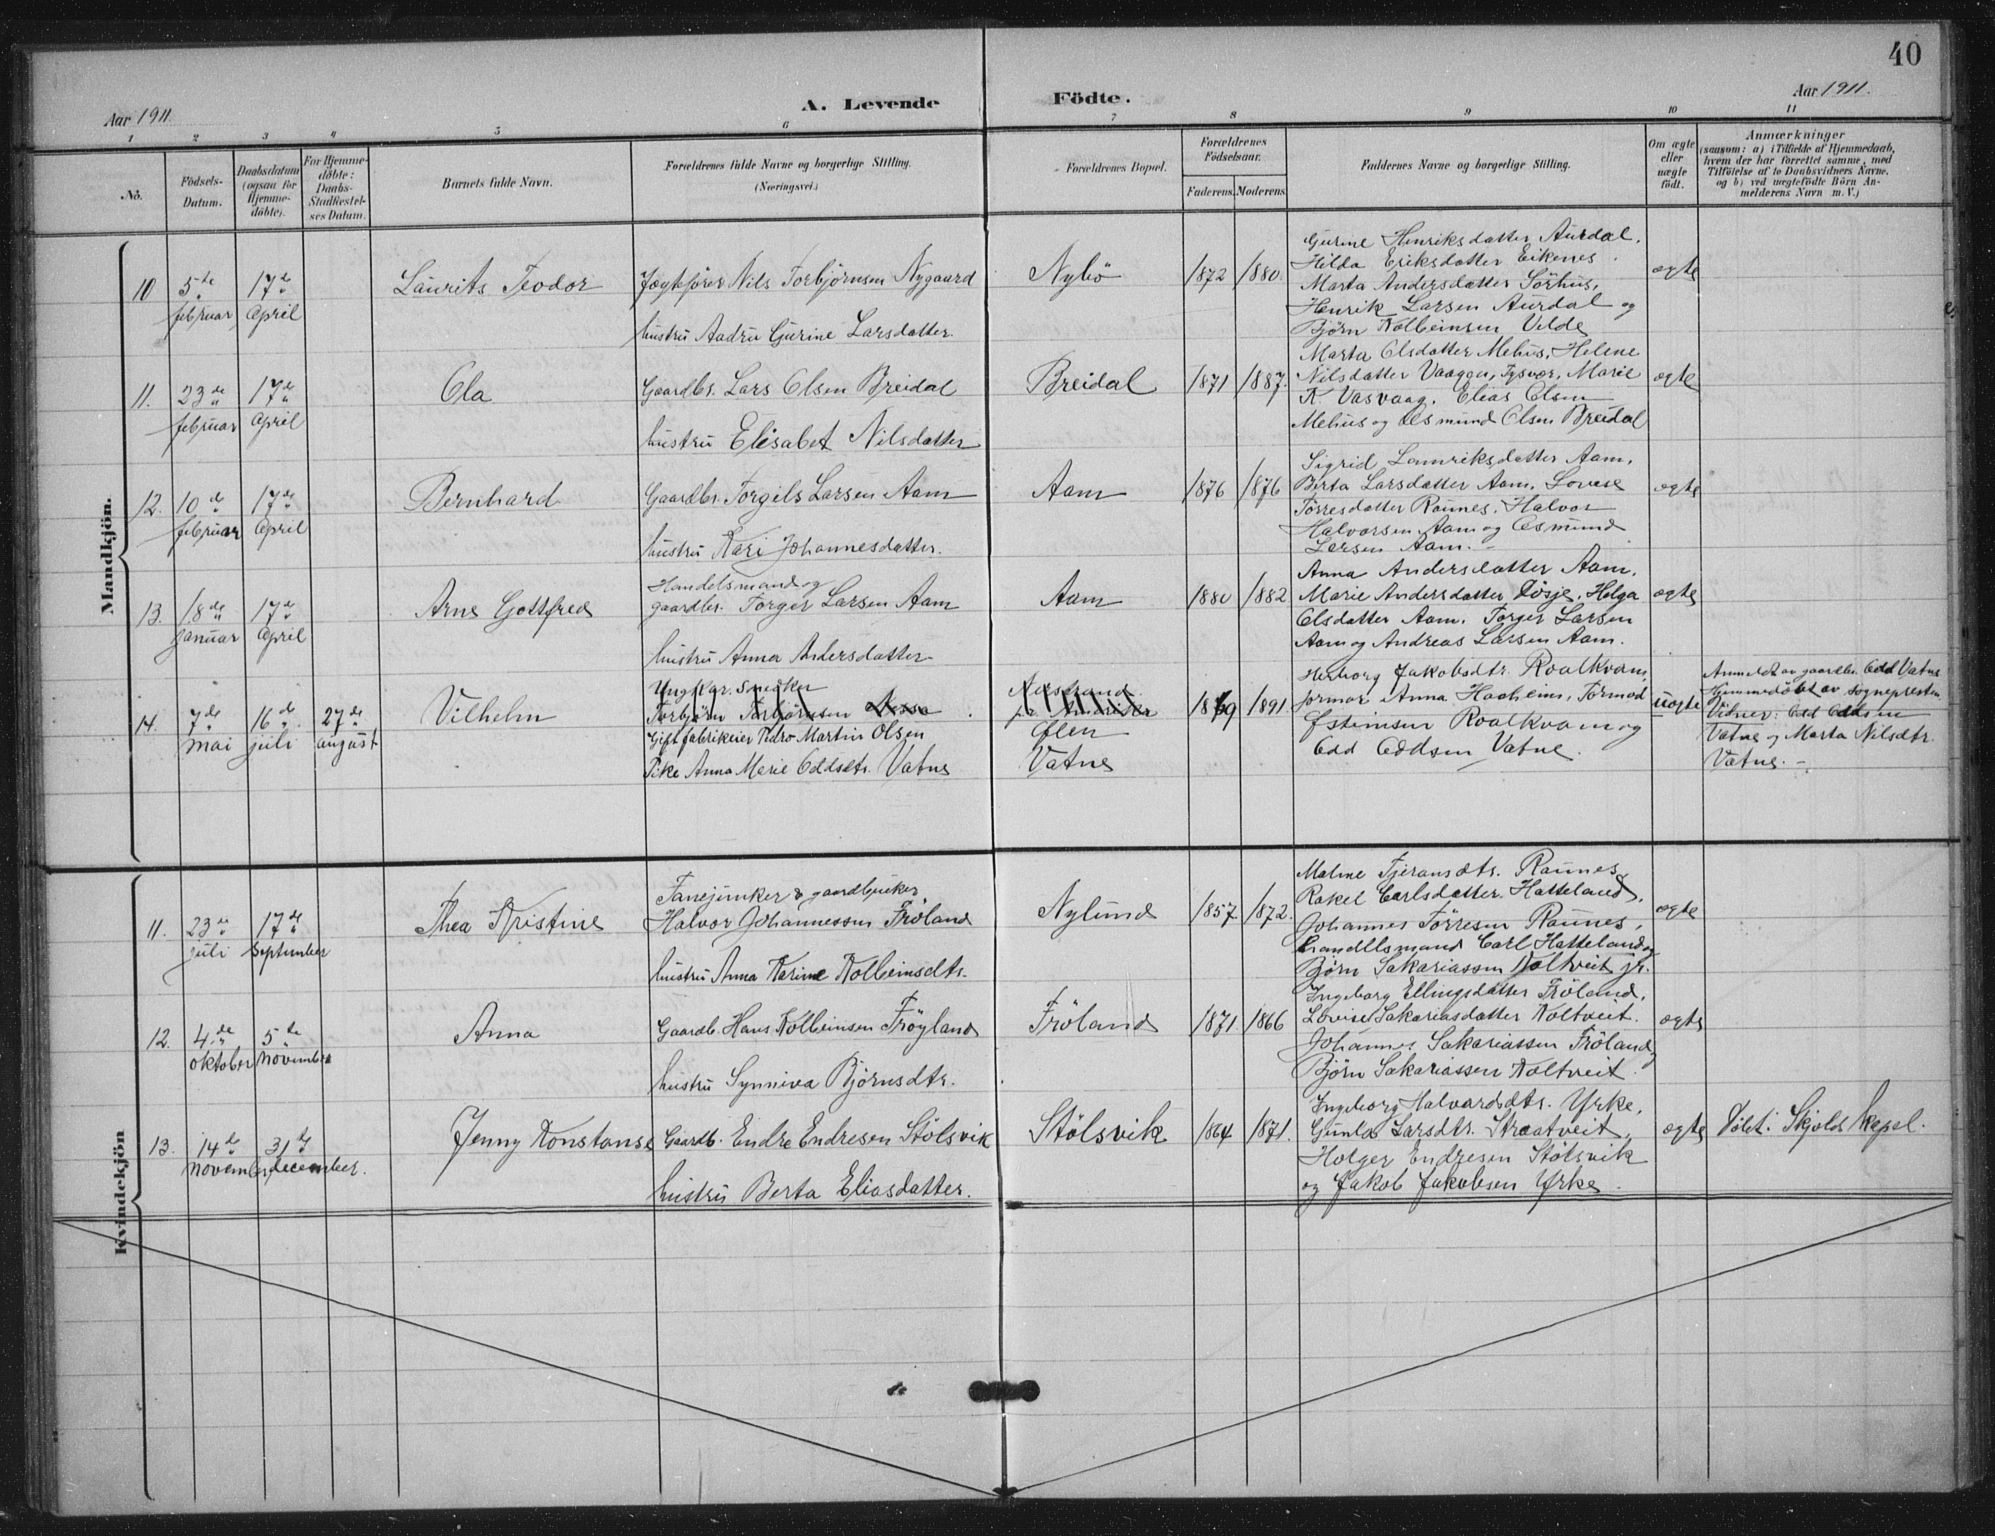 40
A. Levende Födte.
Aar 1911.
Aar 1911.
1 2 3 4 5 6 7 8 9 10 11
No.
Födsels-
Datum.
Daabsdatum
(ogsaa for
Hjemme-
döbte).
For Hjemme-
döbte:
Daabs-
Stadfæstel-
ses Datum.
Barnets fulde Navn.
Forældrenes fulde Navne og borgerlige Stilling.
(Næringsvei.)
Forældrenes Bopæl.
Forældrenes
Födselsaar.
Faderens. Moderens.
Faddernes Navne og borgerlige Stilling.
Om ægte
eller
uægte
födt.
Anmærkninger
(saasom: a) i Tilfælde af Hjemmedaab,
hvem der har forrettet samme, med
Tilföielse af to Daabsvidners Navne,
og b) ved uægtefödte Börn An-
melderens Navn m. V.)
Mandkjön.
10 5te februar 17de April
Laurits Teodor
Jægtefører Nils Torbjörnsen Nygaard
hustru Aadru Gurine Larsdatter.
Nybö
1872 1880.
Gurine Henriksdatter Aurdal.
Hilda Eriksdatter Eikenes.
Marta Andersdatter Sörhus,
Henrik Larsen Aurdal og
Björn Kolbeinsen Velde
ægte
11. 23de februar 17de April
Ola
Gaardbr. Lars Olsen Breidal
hustru Elisabet Nilsdatter
Breidal
1871 1887.
Marta Olsdatter Mehus, Helene
Nilsdatter Vaagen, Tysvær, Marie
K. Vasvaag. Elias Olsen
Mehus og Osmund Olsen Breidal
ægte
12. 10de februar 17de April
Bernhard
Gaardbr. Torgils Larsen Aam
hustru Kari Johannesdatter.
Aam
1876 1876
Sigrid Lauriksdatter Aam.
Berta Larsdatter Aam. Lovise
Törresdatter Raunes. Halvor
Halvorsen Aam og Osmund
Larsen Aam.
ægte
13. 18de januar 17de April
Arne Gottfred
Handelsmand og
gaardbr. Torger Larsen Aam
hustru Anna Andersdatter
Aam
1880 1882
Anna Andersdatter Aam.
Marie Andersdatter Dösje. Helga
Olsdatter Aam. Torger Larsen
Aam og Andreas Larsen Aam.
ægte
14. 7de mai 16de juli 27de august
Vilhelm
Ungkar. Snedker
Torbjörn Torbjörnsen
Gift fabrikeier Pedro Martin Olsen
Pike Anna Marie Oddsdtr. Vatne
Nerstrand
Ølen
Vatne
1879 1891
Herborg Jakobsdtr. Roalkvam,
jormor Anna Haaheim, Tormod
Østeinsen Roalkvam og
Odd Oddsen Vatne.
uægte
Anmeldt av gaardbr. Odd Vatne
Hjemmedöbt av sognepresten
Vidner: Odd Oddsen
Vatne og Marta Nilsdtr.
Vatne.
Kvindekjön
11. 23de juli 17de september
Thea Kristine
Fanejunker & gaardbruker
Halvor Johannessen Fröland
hustru Anna Karine Kolbeinsdtr.
Nylund
1857 1872.
Malene Tjeransdtr. Raunes,
Rakel Carlsdatter Hatteland,
Johannes Törresen Raunes,
handelsmand Carl Hatteland og
Björn Sakariassen Koltveit jr.
ægte
12. 4de oktober 5te november
Anna
Gaardb. Hans Kolbeinsen Fröyland
hustru Synniva Björnsdtr.
Fröland
1871 1866
Ingeborg Ellingsdatter Fröland.
Lovise Sakariasdatter Koltveit.
Johannes Sakariassen Fröland,
Björn Sakariassen Koltveit.
ægte
13. 14de november 31te december.
Jenny Konstanse
Gaardb. Endre Endresen Stölsvik
hustru Berta Eliasdatter.
Stölsvik
1864 1871.
Ingeborg Halvardsdtr. Yrke,
Gunla Larsdtr. Straatveit,
Holger Endresen Stölsvik
og Jakob Jakobsen Yrke.
ægte
Döbt i Skjold kapel.